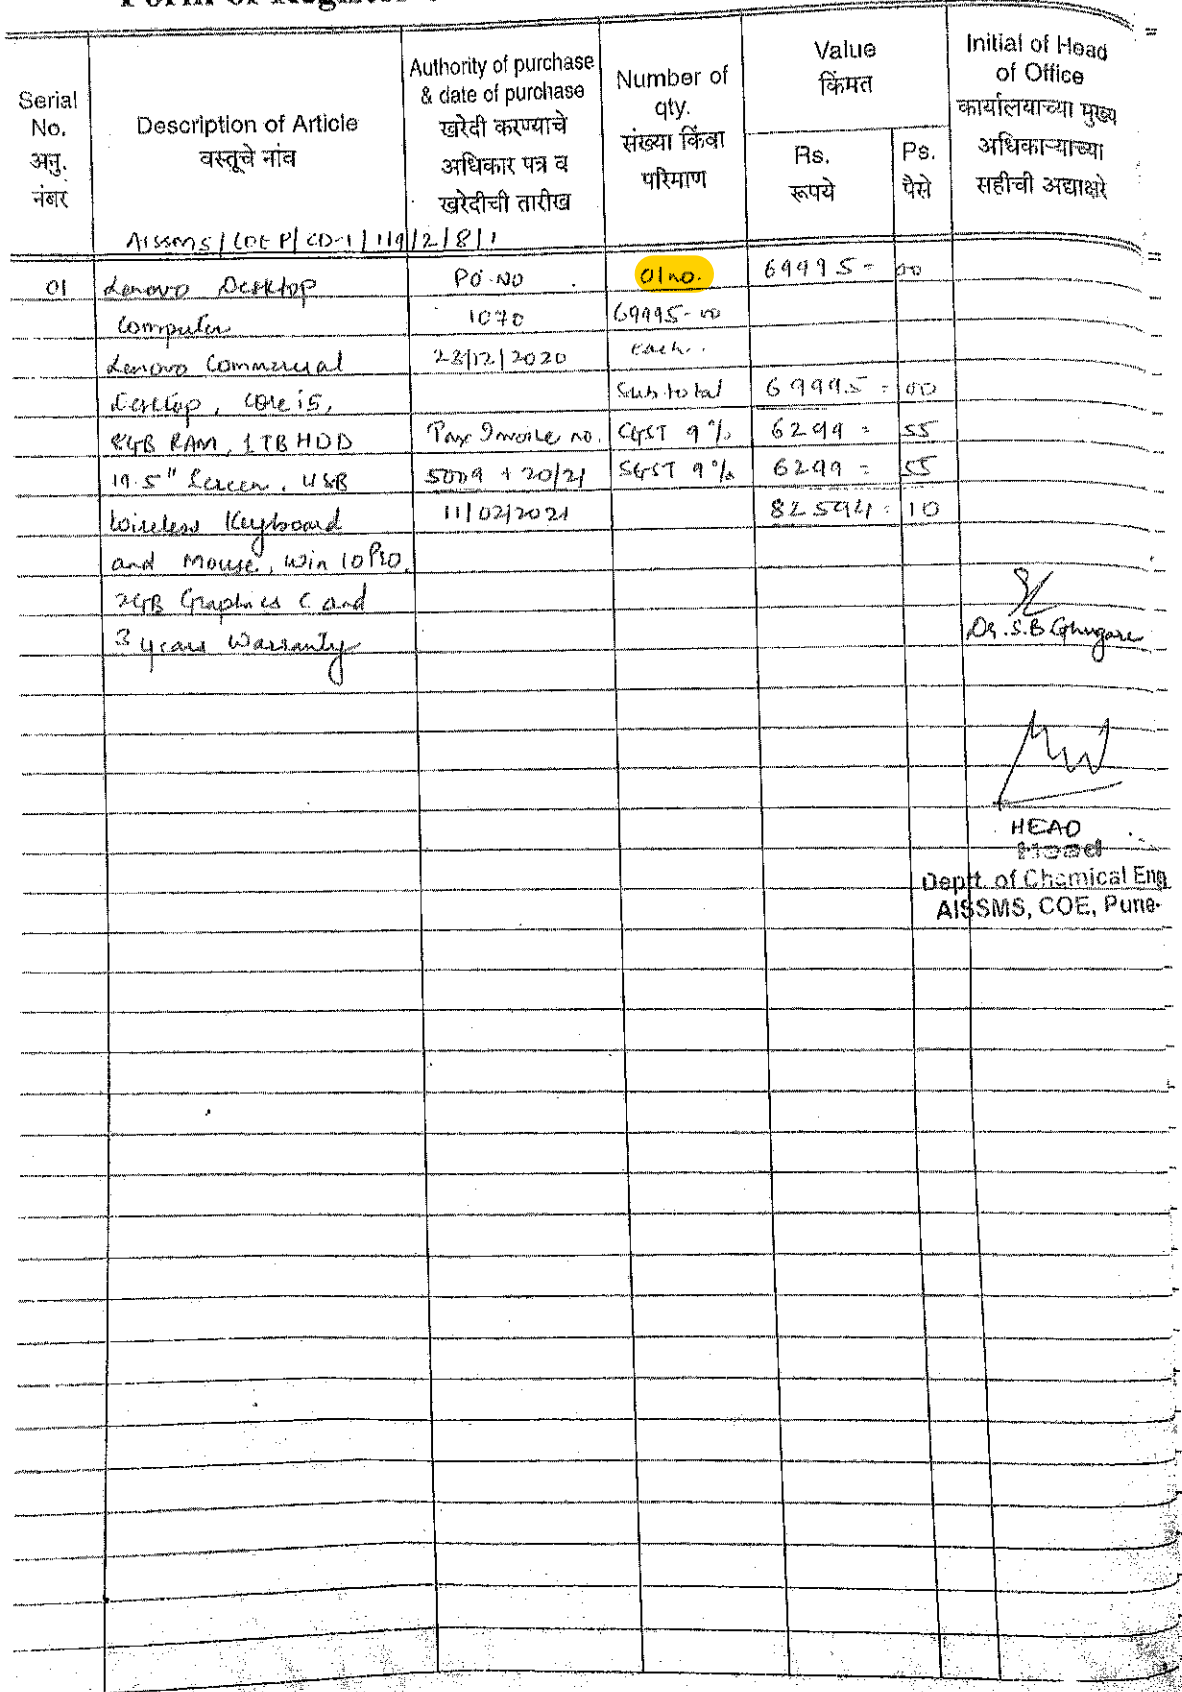 Serial No. अनु. नंबर
Description of Article वस्तूचे नांव
Authority of purchase & date of purchase खरेदी करण्याचे अधिकार पत्र व खरेदीची तारीख
Number of qty. संख्या किंवा परिमाण
Value किंमत
Rs. रूपये
Ps. पैसे
Initial of Head of Office कार्यालयाच्या मुख्य अधिकाऱ्याच्या सहीची अद्याक्षरे
AISSMS/COEP/CD-1/119/2/8/1
01 Lenovo Desktop PO.NO 01 no. 69995- 00
Computer 1070 69995-00
Lenovo Commercial 23/12/2020 each.
Desktop, core i5, Sub total 69995 = 00
8GB RAM, 1TB HDD Tax Invoice no. CGST 9% 6299 = 55
19.5" Screen, USB 5009 + 20/21 SGST 9% 6299 = 55
Wireless Keyboard 11/02/2021 82594 = 10
and Mouse, Win 10 Pro.
2GB Graphics Card
3 years Warranty Dr. S.B Ghugare
HEAD
Head
Deptt. of Chemical Eng
AISSMS, COE, Pune-